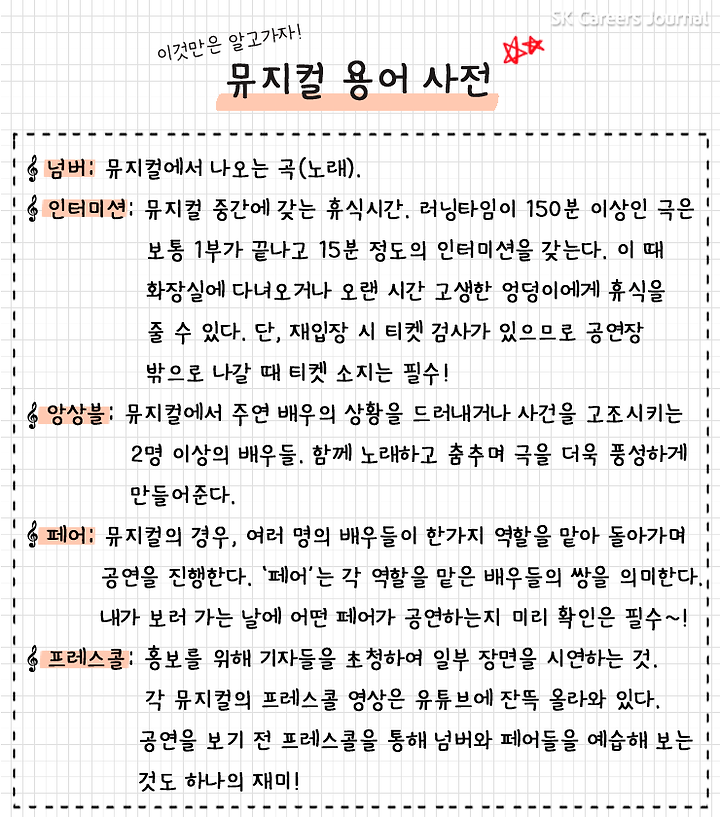 SK Careers Journal
이것만은 알고가자!
뮤지컬 용어 사전
넘버: 뮤지컬에서 나오는 곡(노래).
인터미션: 뮤지컬 중간에 갖는 휴식시간. 러닝타임이 150분 이상인 극은
보통 1부가 끝나고 15분 정도의 인터미션을 갖는다. 이 때
화장실에 다녀오거나 오랜 시간 고생한 엉덩이에게 휴식을
줄 수 있다. 단, 재입장 시 티켓 검사가 있으므로 공연장
밖으로 나갈 때 티켓 소지는 필수!
앙상블: 뮤지컬에서 주연 배우의 상황을 드러내거나 사건을 고조시키는
2명 이상의 배우들. 함께 노래하고 춤추며 극을 더욱 풍성하게
만들어준다.
페어: 뮤지컬의 경우, 여러 명의 배우들이 한가지 역할을 맡아 돌아가며
공연을 진행한다. '페어'는 각 역할을 맡은 배우들의 쌍을 의미한다.
내가 보러 가는 날에 어떤 페어가 공연하는지 미리 확인은 필수~!
프레스콜: 홍보를 위해 기자들을 초청하여 일부 장면을 시연하는 것.
각 뮤지컬의 프레스콜 영상은 유튜브에 잔뜩 올라와 있다.
공연을 보기 전 프레스콜을 통해 넘버와 페어들을 예습해 보는
것도 하나의 재미!